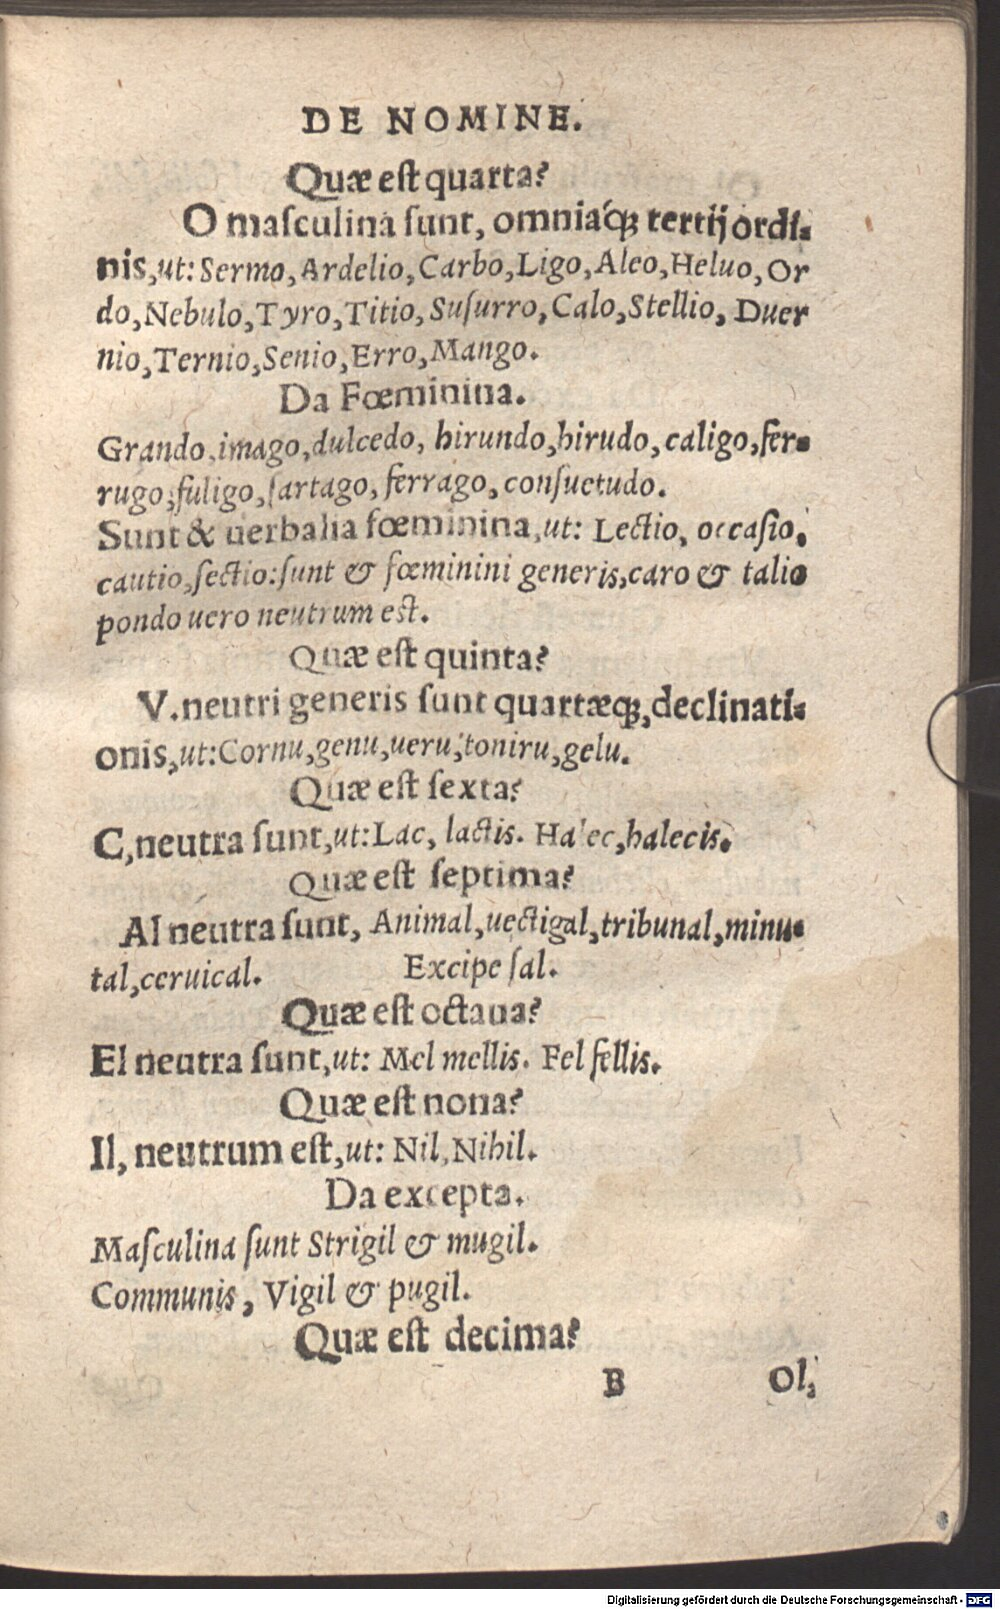 DE NOMINE.
Quæ eſt quarta?
O maſculina ſunt, omniáq; tertij ordi-
nis, ut: Sermo, Ardelio, Carbo, Ligo, Aleo, Heluo, Or
do, Nebulo, Tyro, Titio, Suſurro, Calo, Stellio, Duer
nio, Ternio, Senio, Erro, Mango.
Da Fœminina.
Grando, imago, dulcedo, hirundo, hirudo, caligo, fer-
rugo, fuligo, ſartago, ferrago, conſuetudo.
Sunt & uerbalia fœminina, ut: Lectio, occaſio,
cautio, ſectio: ſunt & fœminini generis, caro & talio
pondo uero neutrum eſt.
Quæ eſt quinta?
V. neutri generis ſunt quartæq;, declinati-
onis, ut: Cornu, genu, ueru, toniru, gelu.
Quæ eſt ſexta?
C, neutra ſunt, ut: Lac, lactis. Halec, halecis.
Quæ eſt ſeptima?
Al neutra ſunt, Animal, uectigal, tribunal, minu-
tal, ceruical. Excipe ſal.
Quæ eſt octaua?
El neutra ſunt, ut: Mel mellis. Fel fellis.
Quæ eſt nona?
Il, neutrum eſt, ut: Nil, Nihil.
Da excepta.
Maſculina ſunt Strigil & mugil.
Communis, Vigil & pugil.
Quæ eſt decima?
B Ol,
Digitalisierung gefördert durch die Deutsche Forschungsgemeinschaft - DFG